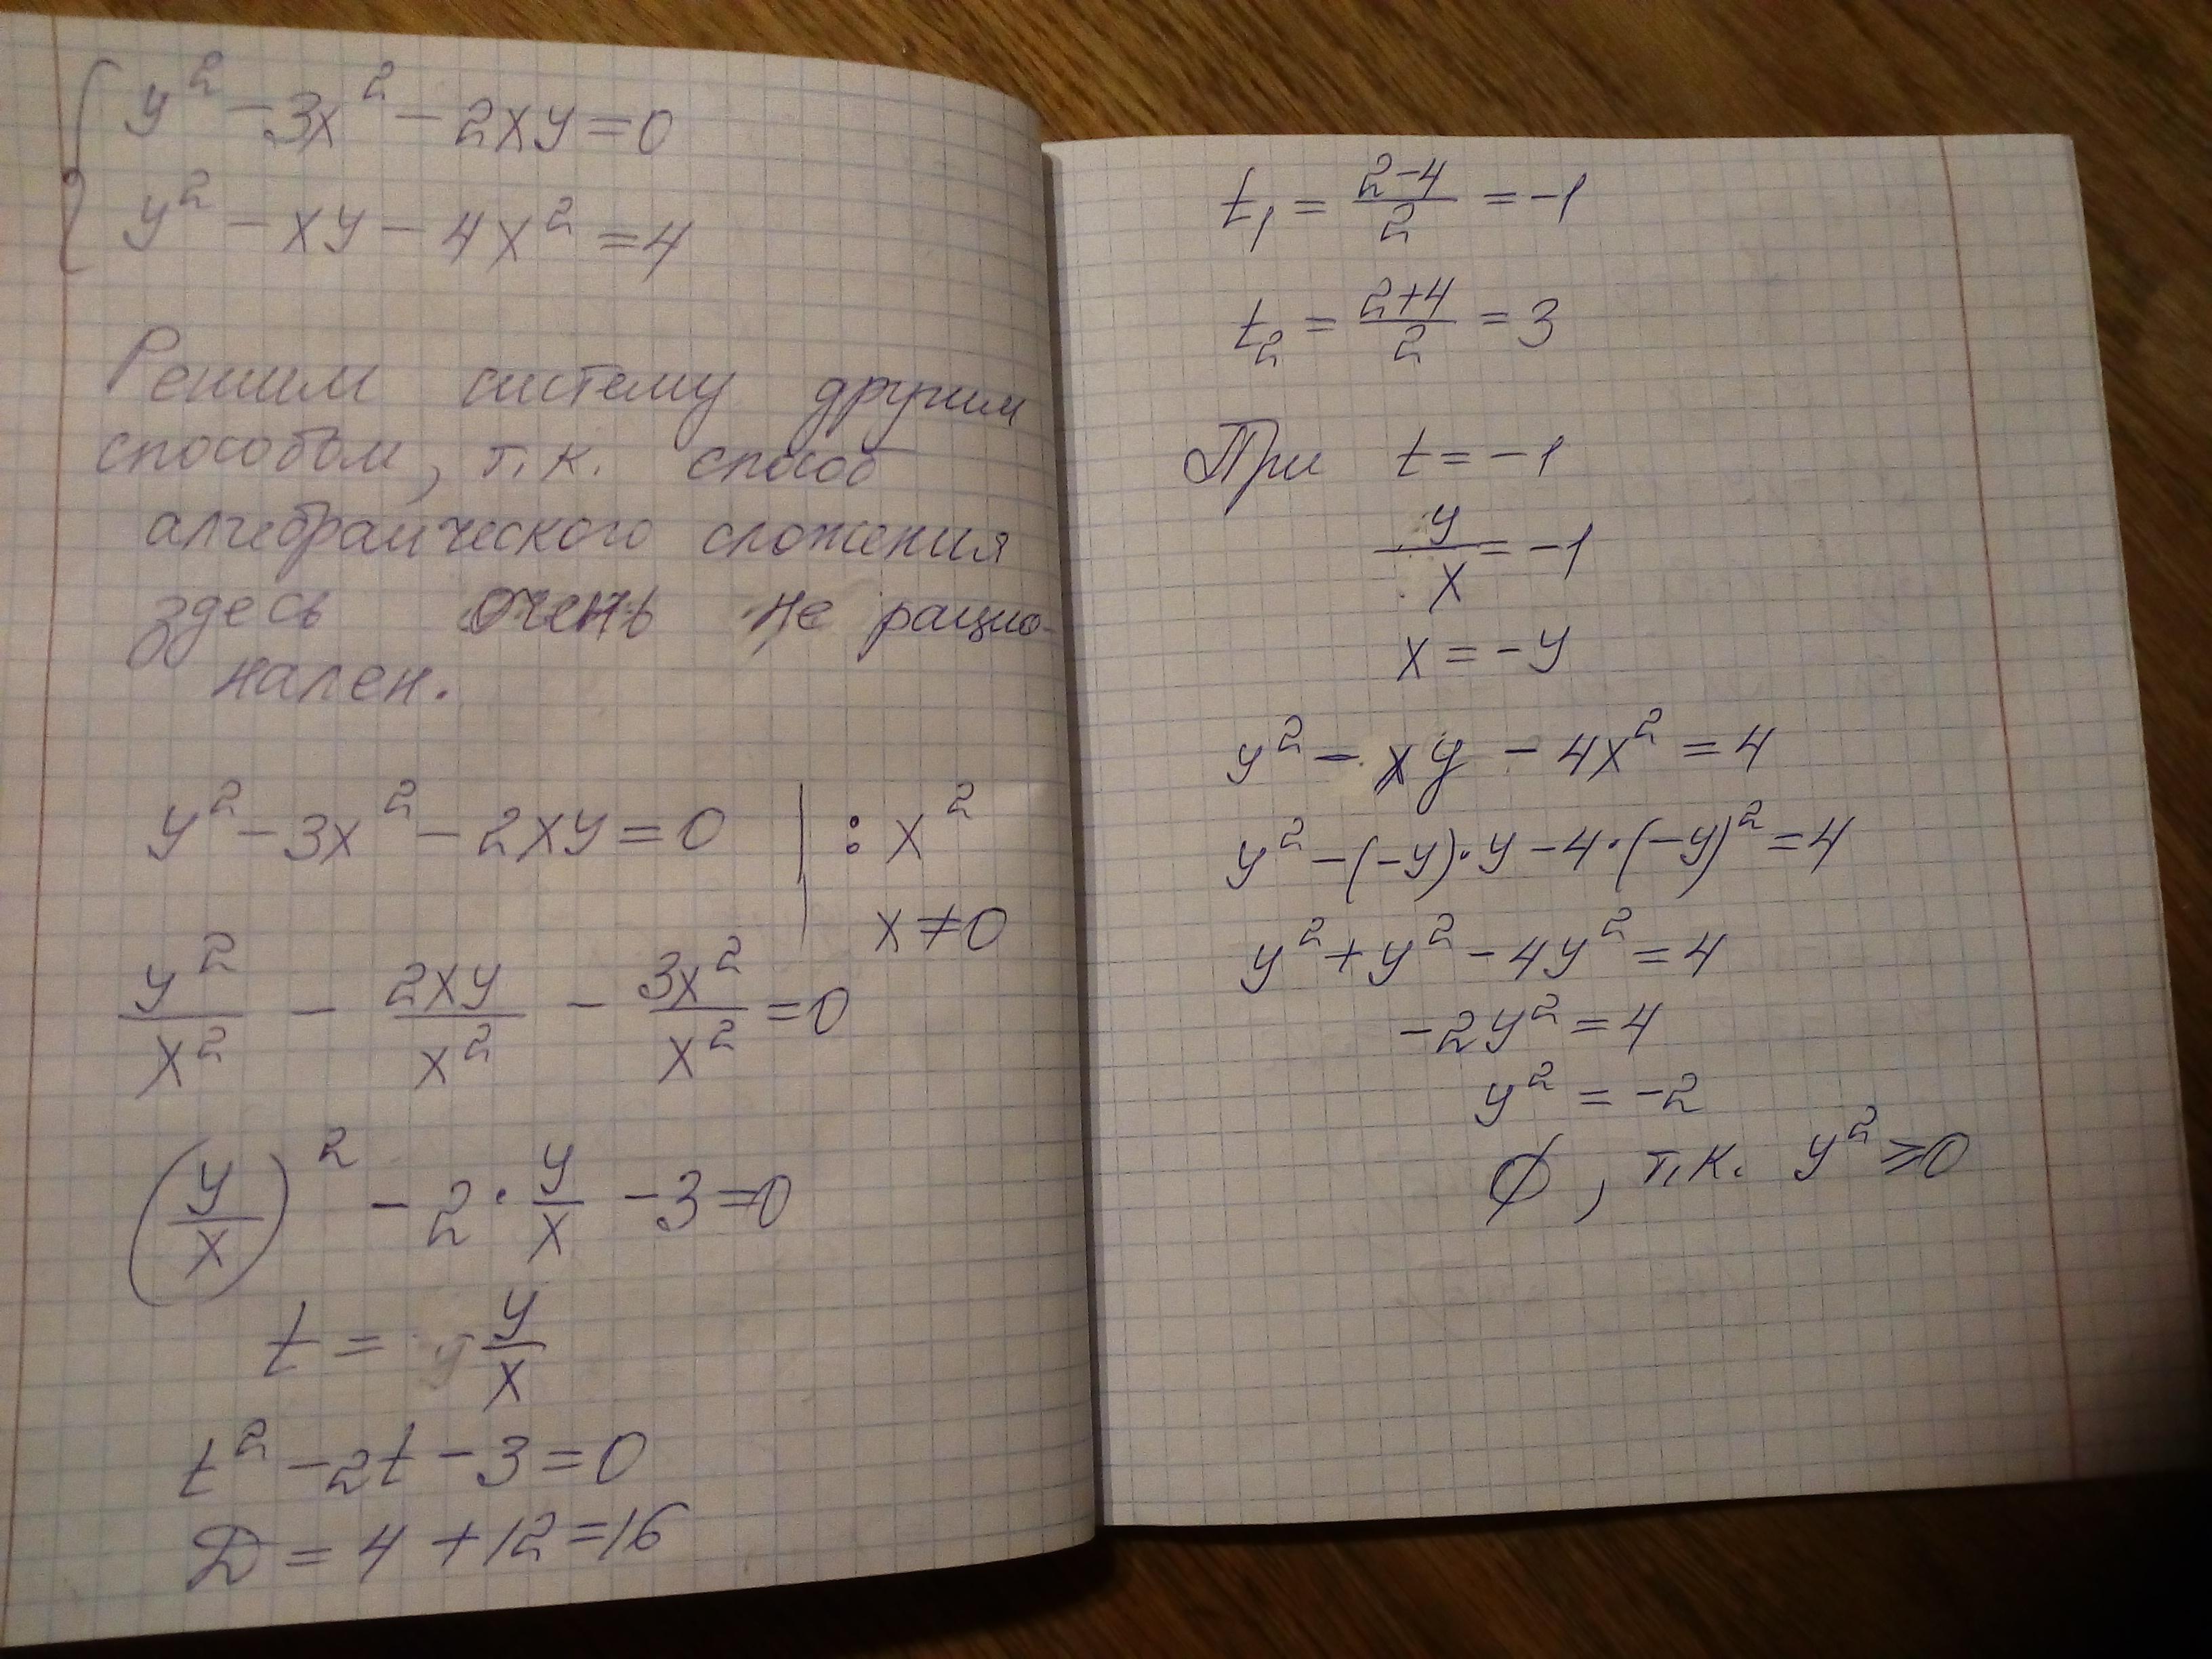 y² - 3x² - 2xy = 0
y² - xy - 4x² = 4
Решим систему другим
способом, т.к. способ
алгебраического сложения
здесь очень не рацио-
нален.
y² - 3x² - 2xy = 0 | : x²
x ≠ 0
y²/x² - 2xy/x² - 3x²/x² = 0
(y/x)² - 2 · y/x - 3 = 0
t = y/x
t² - 2t - 3 = 0
D = 4 + 12 = 16
t₁ = (2-4)/2 = -1
t₂ = (2+4)/2 = 3
При t = -1
y/x = -1
x = -y
y² - xy - 4x² = 4
y² - (-y)·y - 4·(-y)² = 4
y² + y² - 4y² = 4
-2y² = 4
y² = -2
∅, т.к. y² ⩾ 0